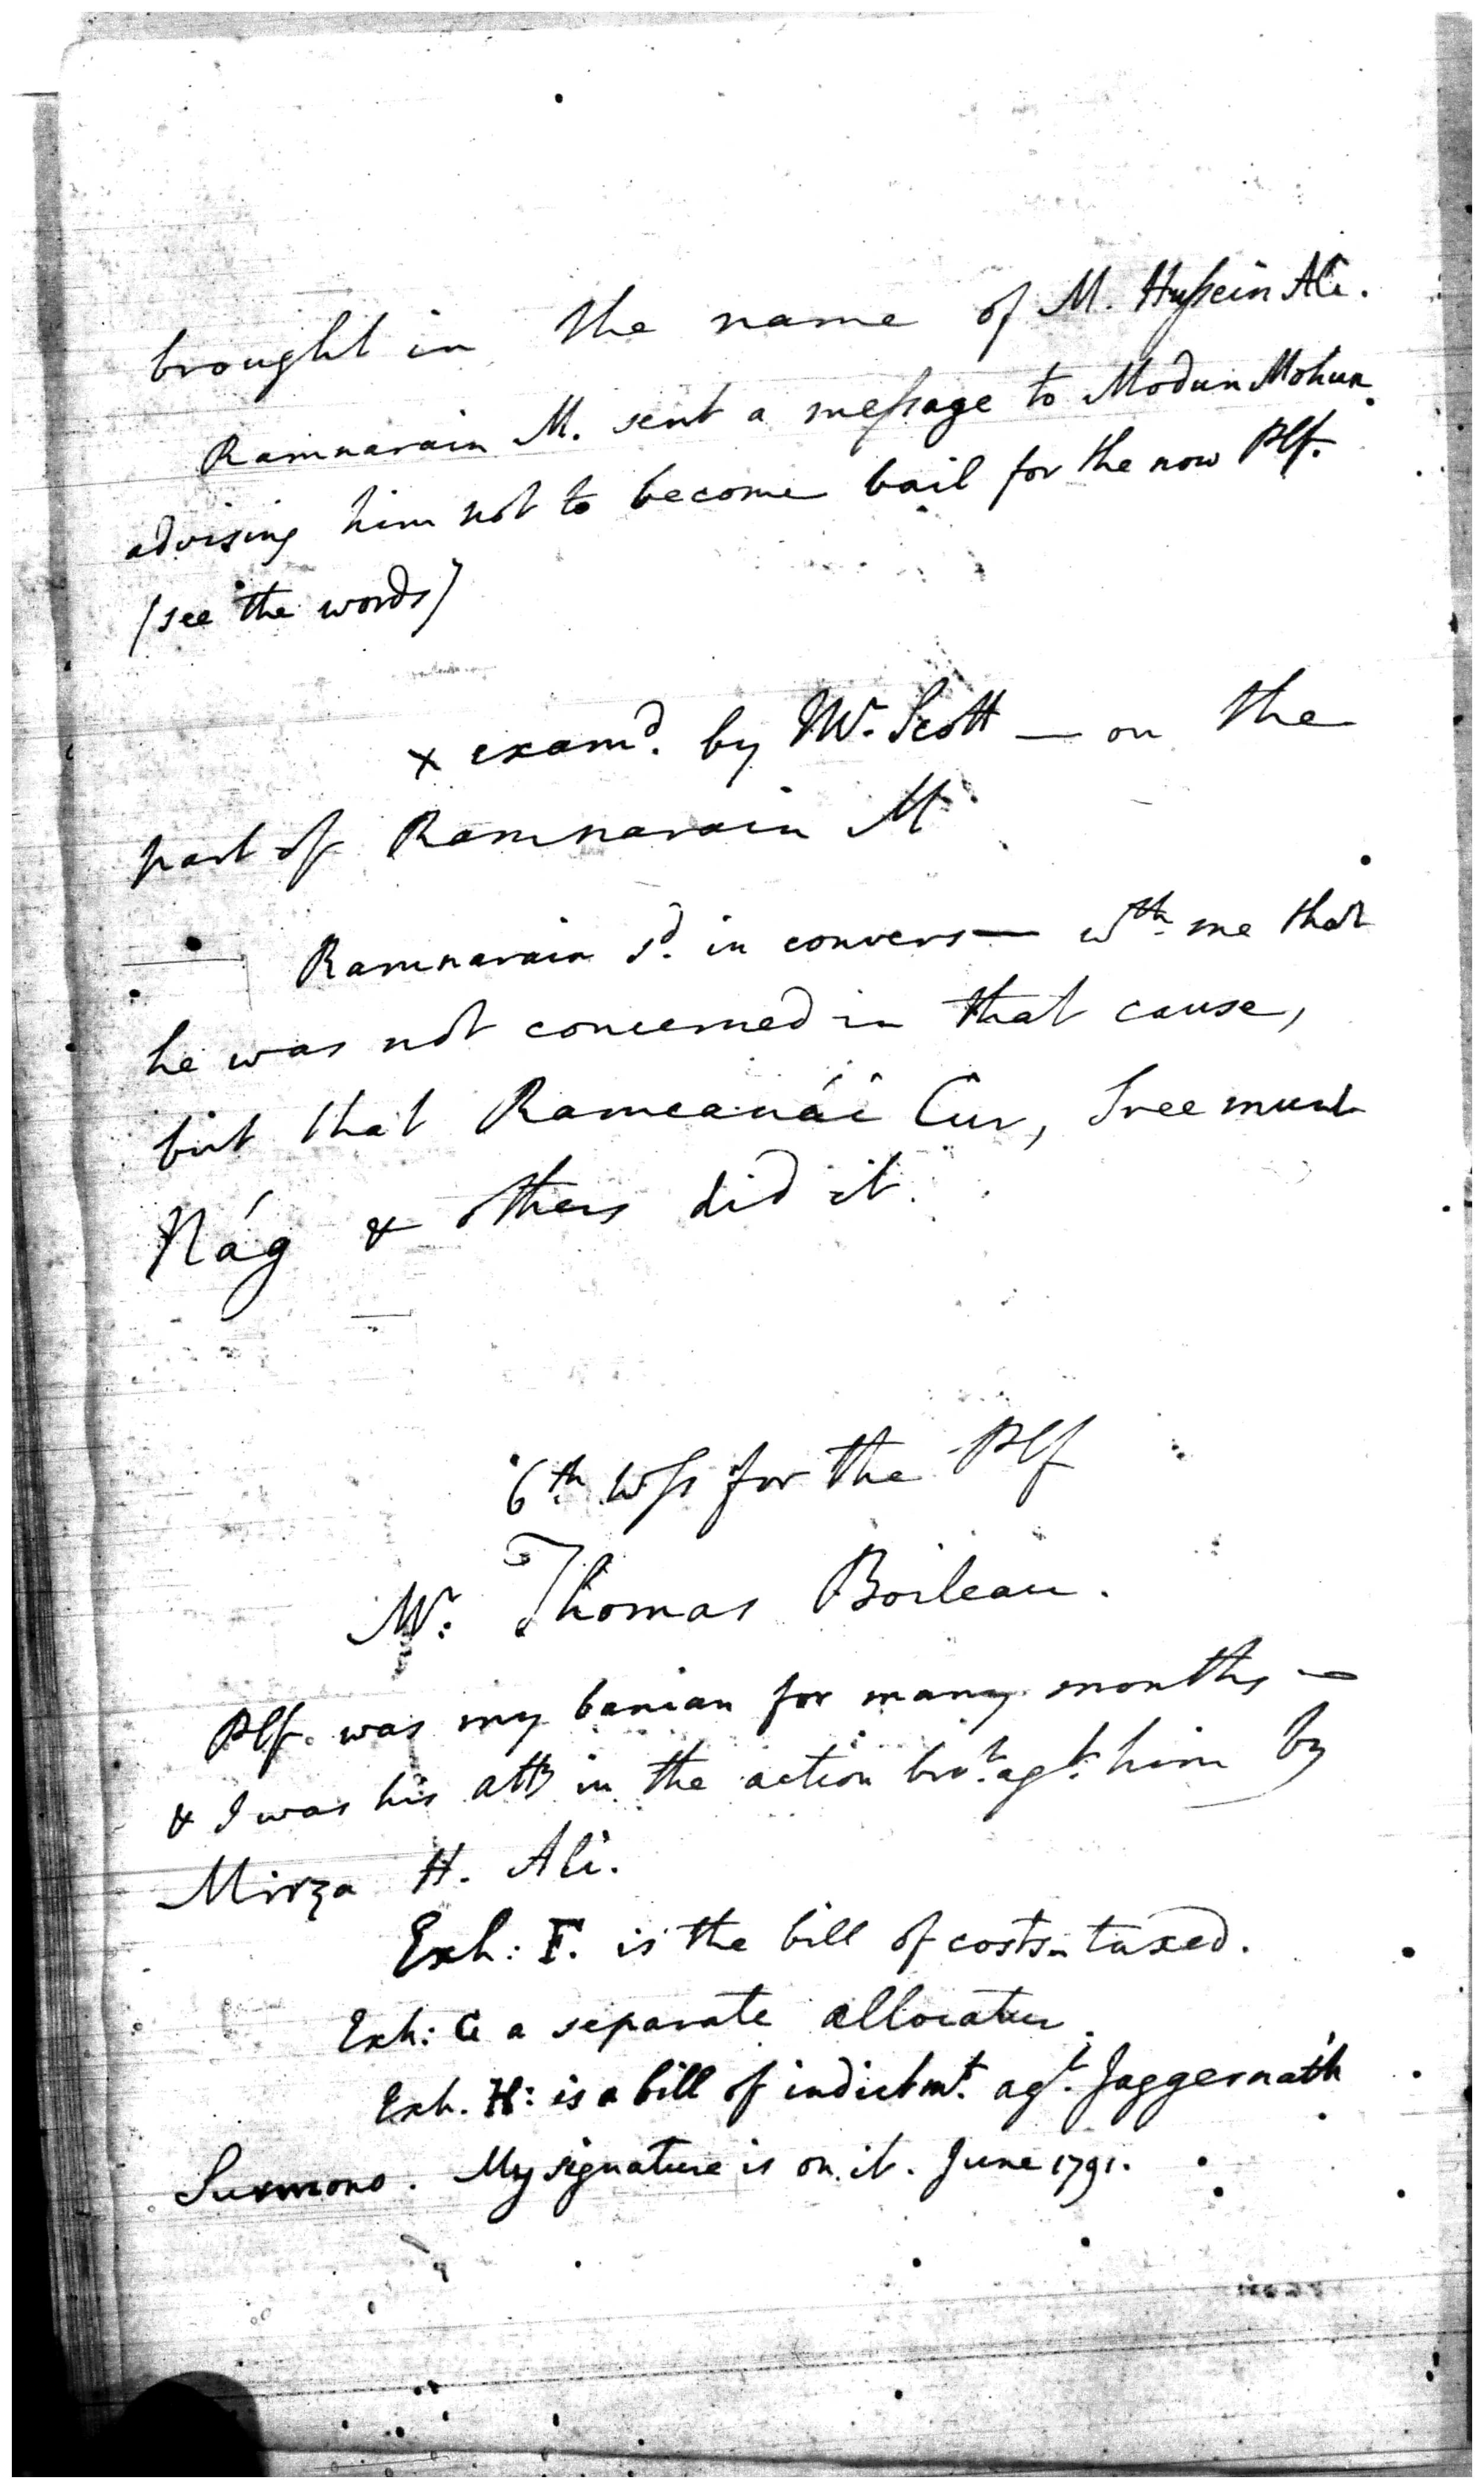 brought in the name of M. Hussein Ali.
Ramnarain M. sent a message to Modun Mohun
advising him not to become bail for the now Plf.
(see the words)
x examd. by Mr. Scott — on the
part of Ramnarain M
Ramnarain sd. in convers— wth. me that
he was not concerned in that cause,
but that Ramcanái Cur, Sree munt
Nág & others did it.
6th. wss for the Plf
Mr: Thomas Boileau.
Plf. was my banian for many months —
& I was his atty in the action brot. agt. him by
Mirza H. Ali.
Exh: F. is the bill of costs taxed.
Exh: G a separate allocatur.
Exh. H: is a bill of indictmt. agt. Jaggernáth
Surmono. My signature is on it. June 1791.